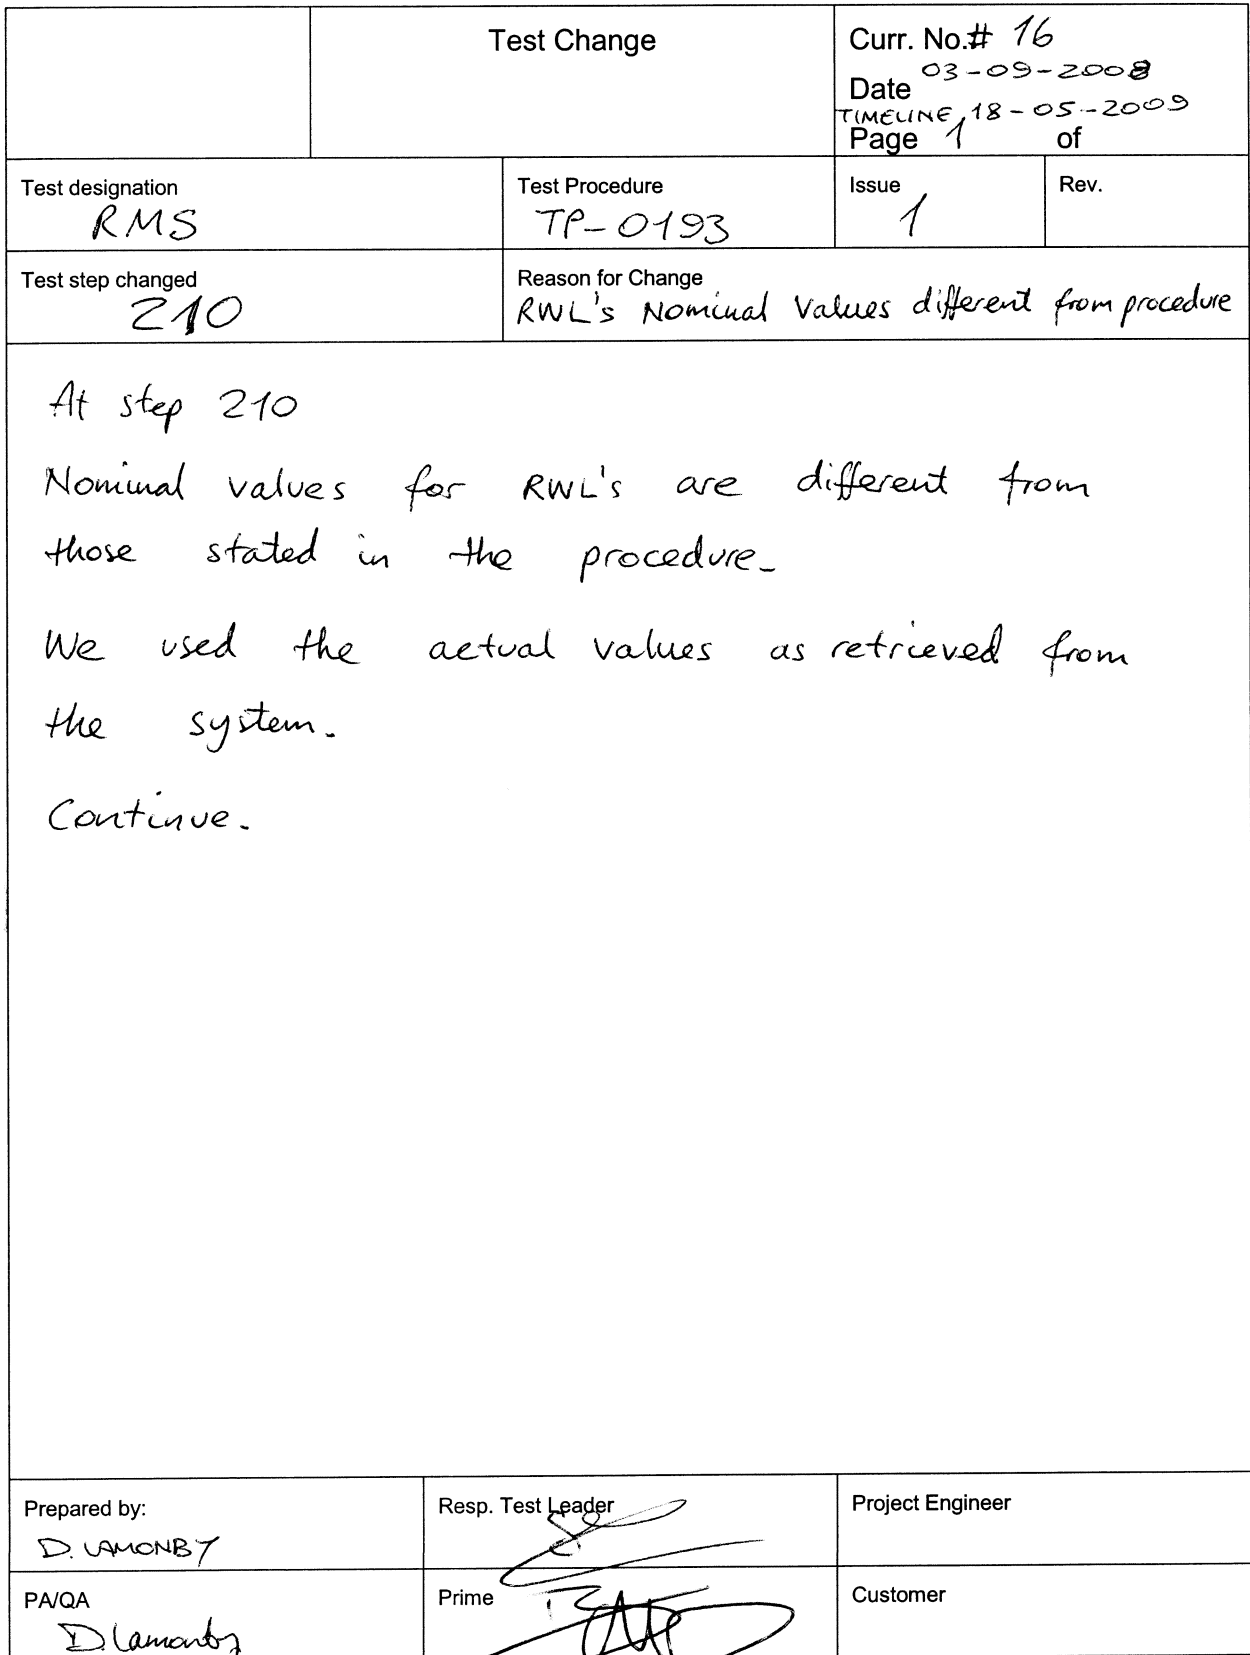 Test Change
Curr. No.# 16
Date 03-09-2008
TIMELINE 18-05-2009
Page 1 of
Test designation
RMS
Test Procedure
TP-0193
Issue
1
Rev.
Test step changed
210
Reason for Change
RWL's Nominal Values different from procedure
At step 210
Nominal values for RWL's are different from
those stated in the procedure.
We used the actual values as retrieved from
the system.
Continue.
Prepared by:
D. LAMONBY
Resp. Test Leader
Project Engineer
PA/QA
D. Lamonby
Prime
Customer